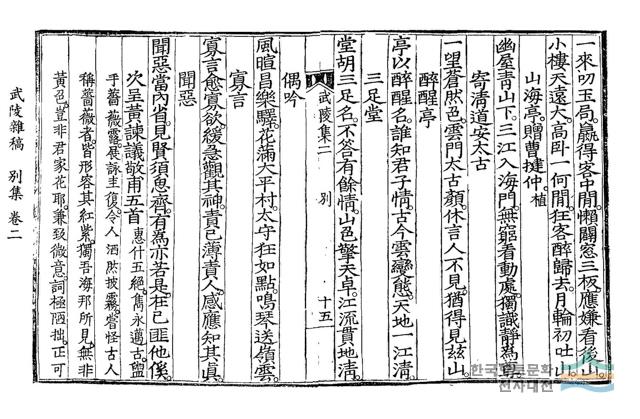 一來叨玉局。贏得客中閒。懶闢窓三板。應嫌看後山
小樓天遠大。高臥一何閒。狂客醉歸去。月輪初吐山
山海亭。贈曹揵仲。植
幽屋靑山下。三江入海門。無窮看動處。獨識靜爲尊
寄淸道安太古
一望蒼然邑。雲門太古顏。休言人不見。猶得見玆山。
醉醒亭
亭以醉醒名。誰知君子情。古今雲變態。天地一江淸
三足堂
堂胡三足名。不答有餘情。山色擎天卓。江流貫地淸。
武陵集二 別 十五
偶吟
風暄昌樂驛。花滿大平村。太守狂如點。鳴琴送嶺雲。
寡言
寡言愈寡欲。緩急觀其神。責己薄責人。感應知其眞
聞惡
聞惡當內省。見賢須思齊。有爲亦若是。在己匪他傒。
次呈黃諫議敬甫五首 惠什五絶。雋永邁古。盥
手薔薇露。展詠圭復。令人洒然披霧。嘗怪古人
稱薔薇者。皆形容其紅紫。獨吾海邦所見。無非
黃色。豈非君家花耶。兼致微意。詞極陋拙。正可
武陵雜稿 別集 卷二
한국향토문화
전자대전